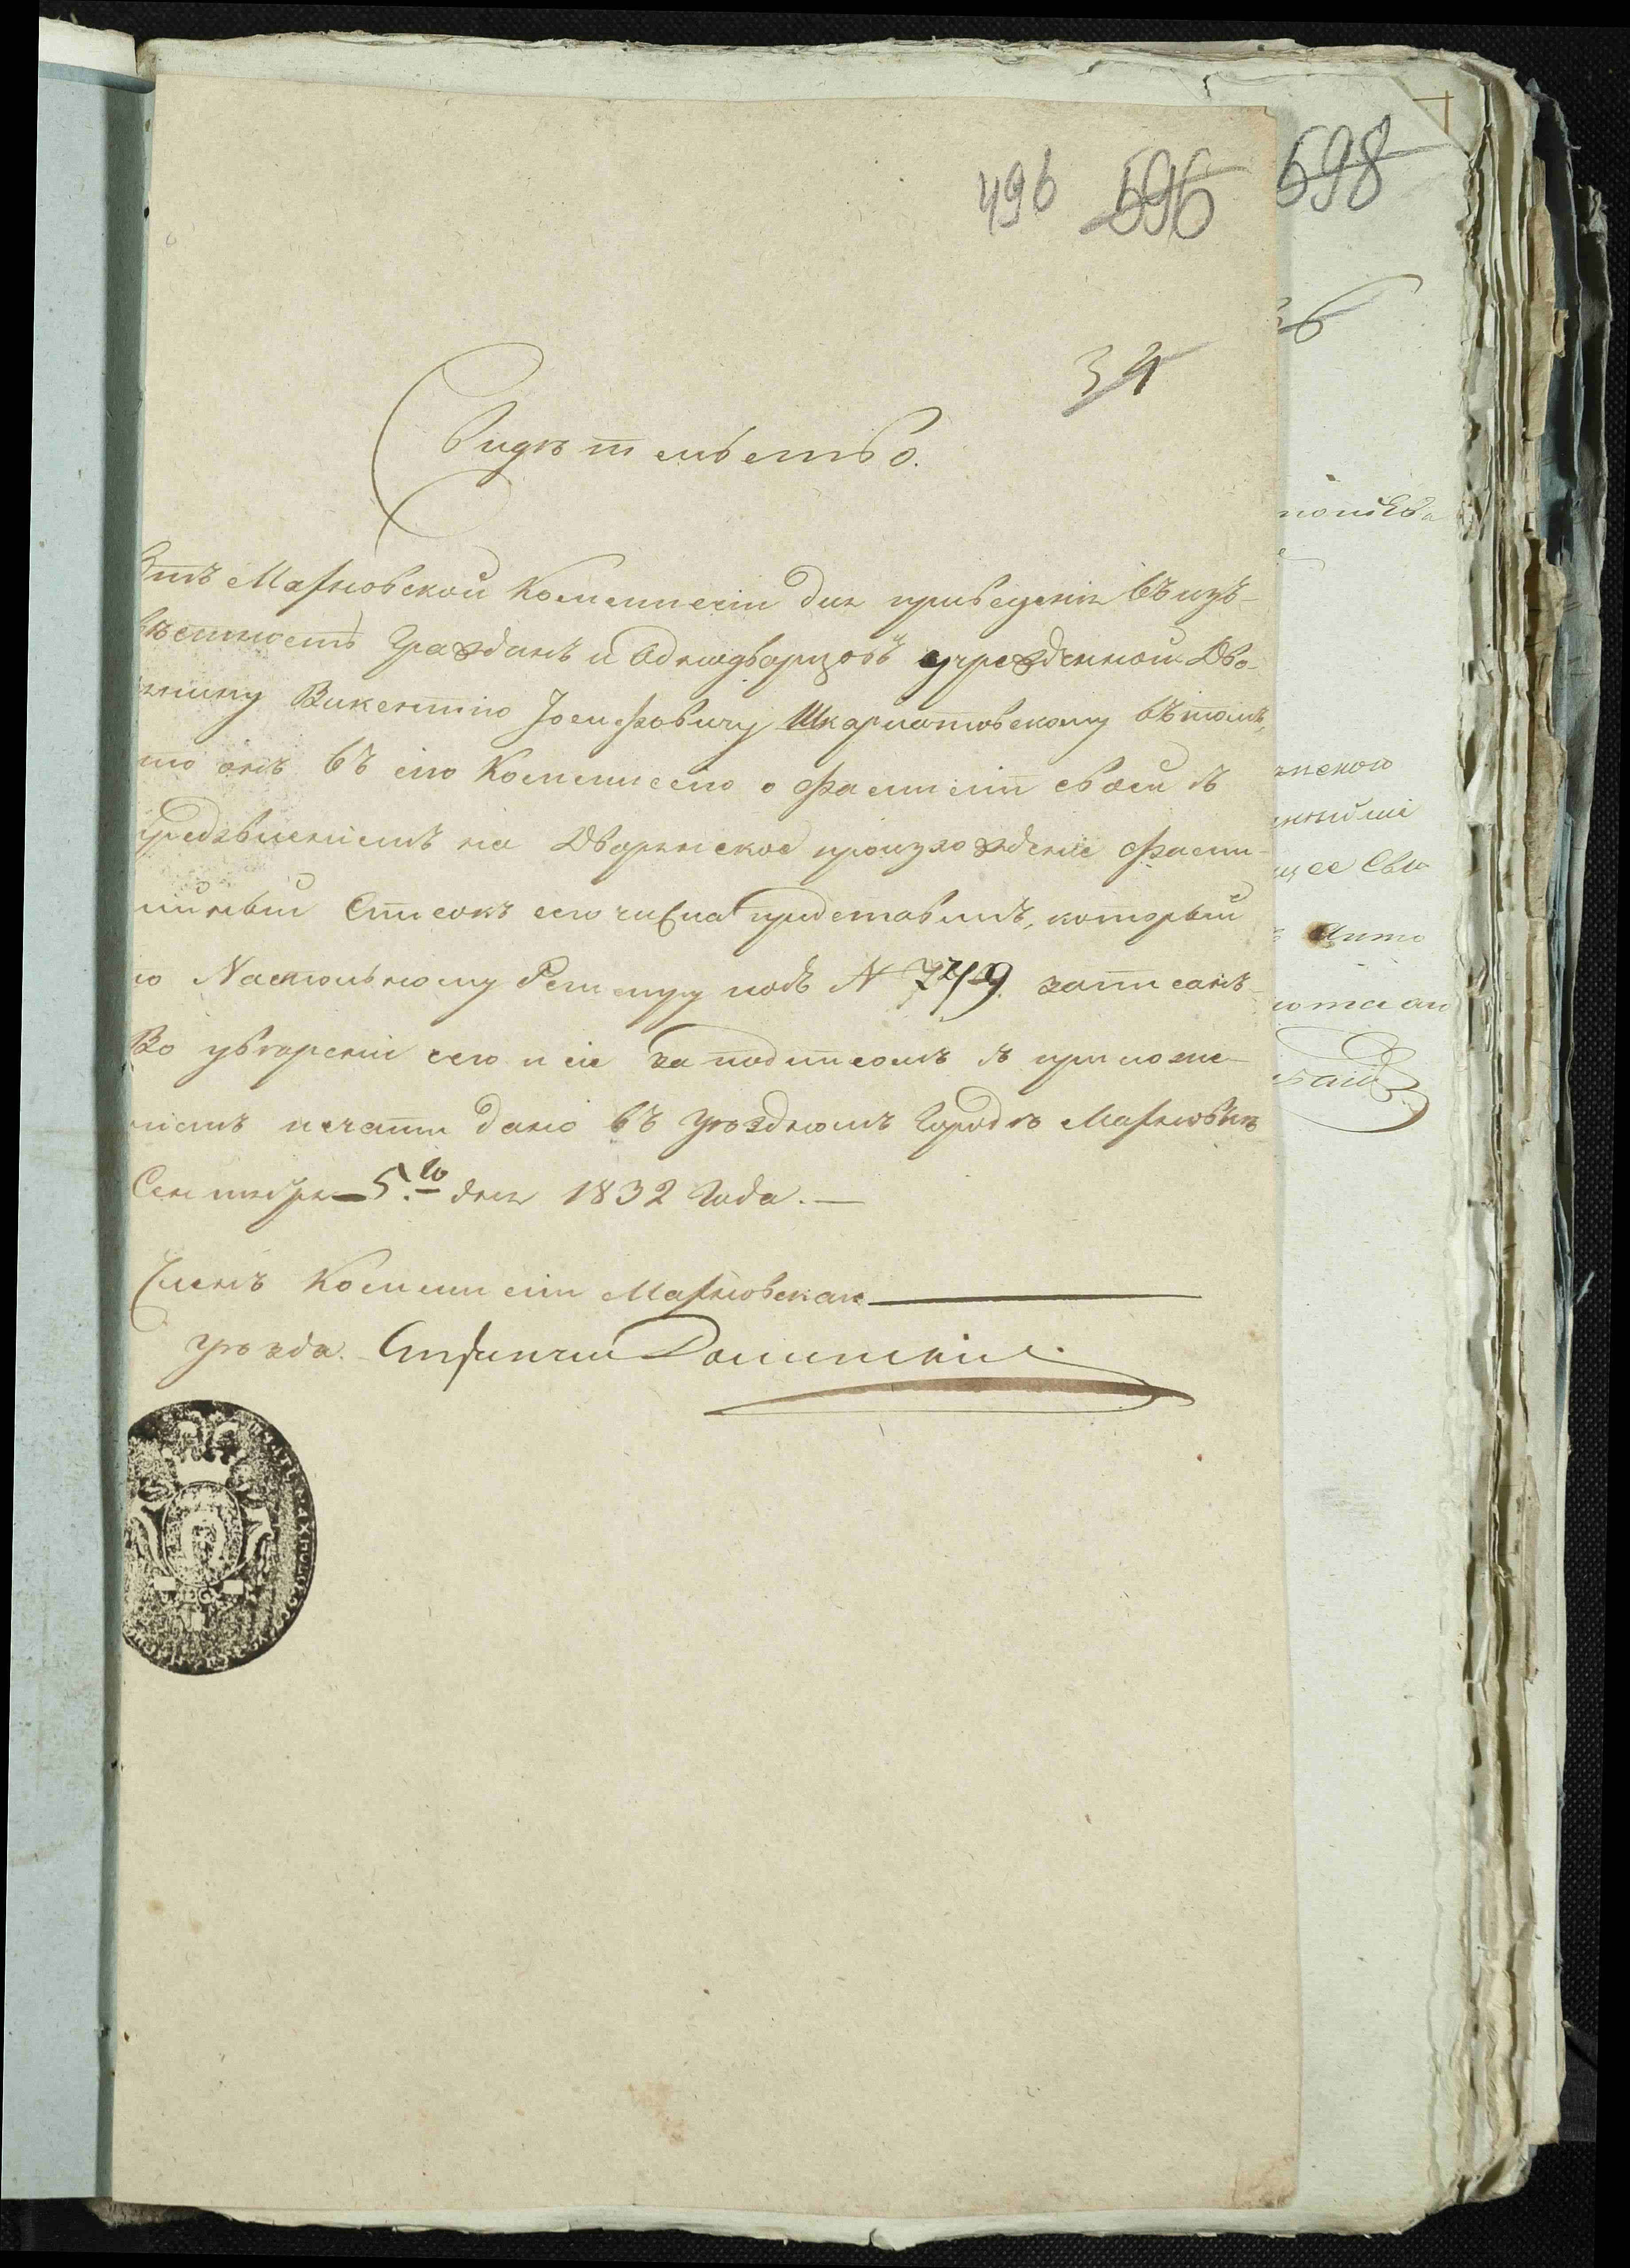 496 596 698
34
Свидѣтельство.
Отъ Махновской Коммиссіи для приведенія въ изъ-
вѣстность Гражданъ и Однодворцовъ учрежденной Дво-
рянину Викентію Іосифовичу Шкарлатовскому въ томъ,
то онъ въ сію Коммиссію о Фамиліи своей съ
предявленіемъ на Дворянское произхожденіе Фами-
лійный Списокъ сего числа представилъ, который
по Настольному Регестру подъ N 7249 записанъ
Во увѣреніе сего и сіе за подписомъ съ приложе-
ніемъ печати дано въ уѣздномъ Городѣ Махновкѣ
Сентября 5.го дня 1832 Года.—
Членъ Коммиссіи Махновскаго
уѣзда.